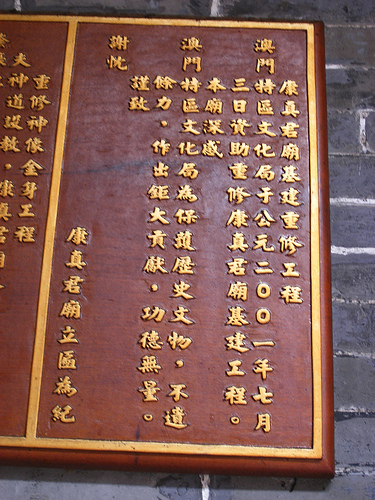 康真君廟基建重修工程
澳門特區文化局于公元二〇〇一年七月
三日資助重修康真君廟基建工程。
本廟深感
澳門特區文化局為保護歷史文物，不遺
餘力，作出鉅大貢獻，功德無量。
謹致
謝忱
康真君廟立匾為紀
重修神像金身工程
夫神道設教，康真君廟